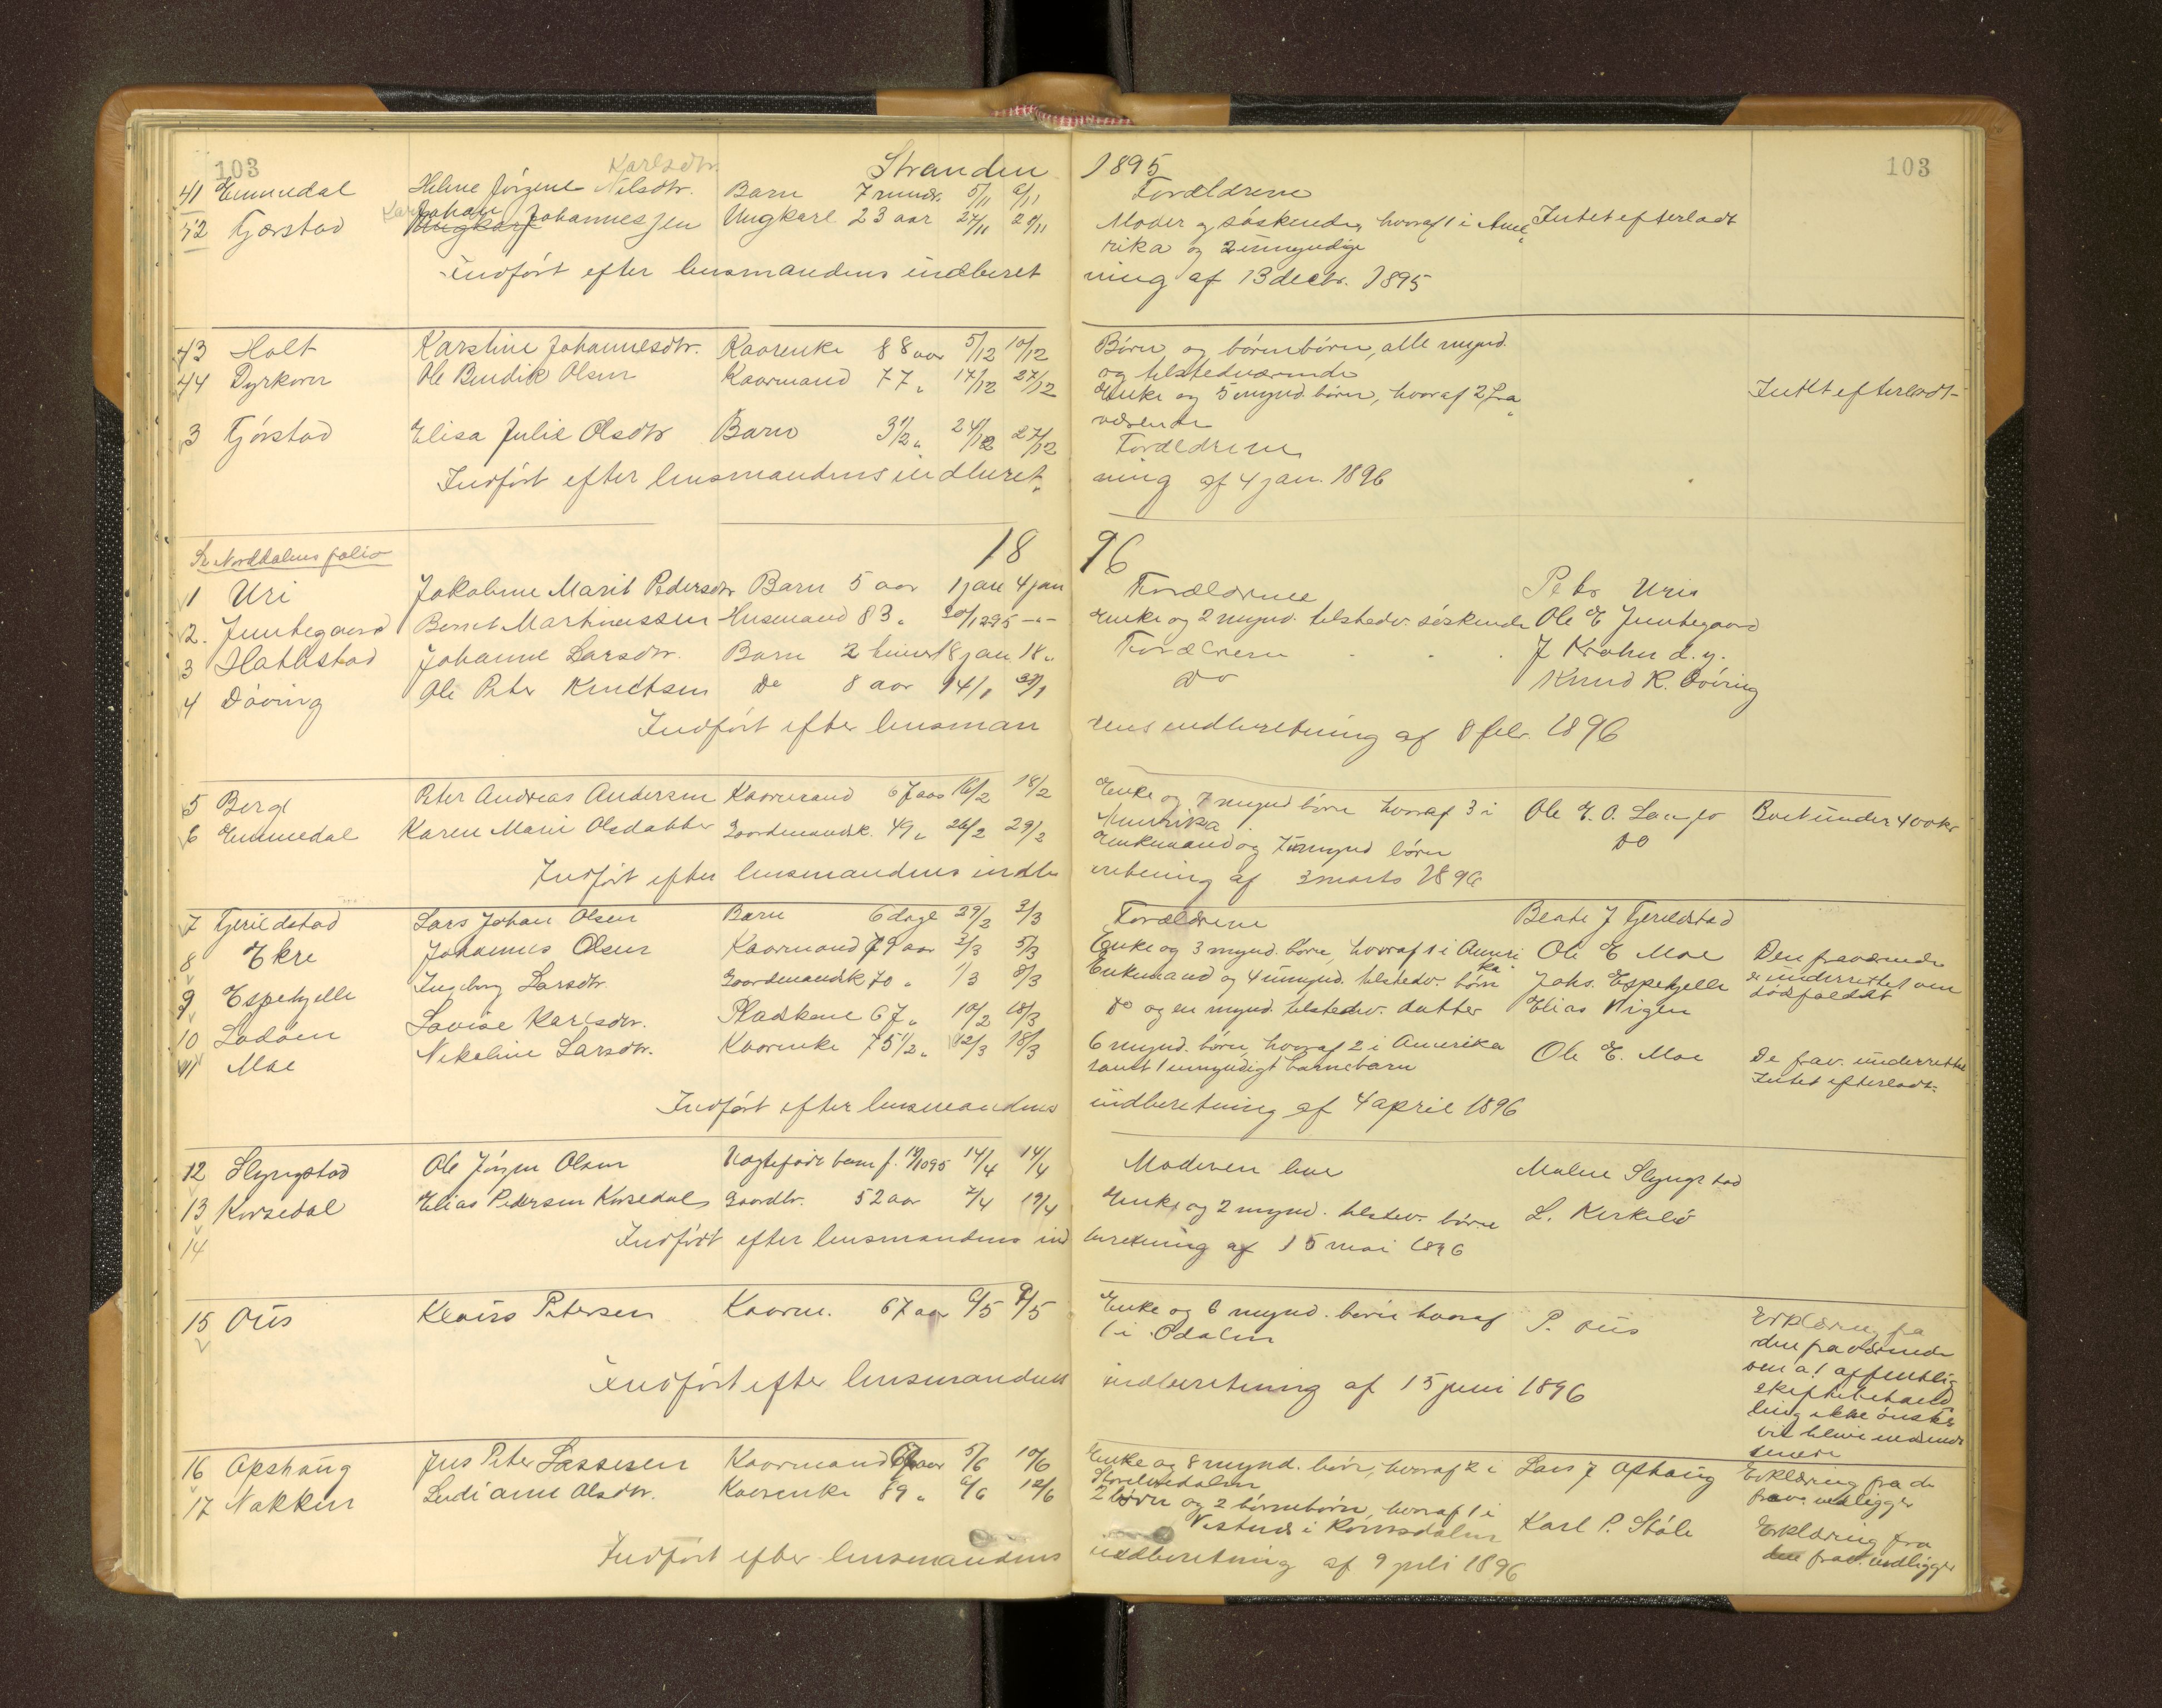 103 Karlsdtr. Stranden 1895 103
41 Emmedal Heline Jørgine Nilsdtr. Barn 7 mndr. 5/11 9/11 Forældrene
42 Gjærstad Johan Johannesen Ungkarl 23 aar 27/11 29/11 Moder og søskende, hvoraf 1 i Ame Intet efterladt
rika og 2 umyndige
Indført efter lensmandens indberet ning af 13 decbr. 1895
43 Holt Karstine Johannesdtr. Kaarenke 88 aar 5/12 10/12 Børn og børnebørn, alle mynd.
og tilstedværende
44 Dyrkorn Ole Bendik Olsen Kaarmand 77 " 17/12 27/12 Enke og 5 mynd. børn, hvoraf 2 fra Intet efterladt
værende
3 Gjørstad Elisa Julie Olsdtr Barn 3 1/2 " 24/12 27/12 Forældrene
Indført efter lensmandens indberet ning af 4 jan. 1896
Se Norddalens folio 18 96
1 Uri Jakobine Marit Pedersdtr Barn 5 aar 1 jan 4 jan Forældrene Petr Uri
2. Jemtegaard Bernt Martinussen Husmand 83 " 20/12 95 -"- Enke og 2 mynd. tilstedv. søskende Ole E Jemtegaard
3 Hatlestad Johanne Larsdtr. Barn 2 timer 18 jan 18 " Forældrene J Krohn d. y.
4 Døving Ole Peter Knudtsen Do 8 aar 14/1 Do Knud K. Døving
Indført efter lensman dens indberetning af 8 febr. 1896
5 Berge Peter Andreas Andersen Kaarmand 67 aar 16/2 18/2 Enke og 7 mynd børn hvoraf 3 i Ole E. O. Langlo Boet under 400 kr
Amerika
6 Emmedal Karen Marie Olsdatter Gaardmandsk. 49 " 26/2 29/2 Enkemand og 7 umynd børn Do
Indført efter lensmandens indbe retning af 3 marts 1896
7 Gjerildstad Lars Johan Olsen Barn 6 dage 29/2 3/3 Forældrene Beate J Gjerildstad
8 Ekre Johannes Olsen Kaarmand 79 aar 2/3 5/3 Enke og 3 mynd. børn, hvoraf 1 i Ameri Ole E Moe Den fraværende
ka.
9 Espehjelle Ingeborg Larsdtr. Gaardmandsk 70 " 1/3 8/3 Enkemand og 4 umynd. tilstedv. børn Johs. Espehjelle er underrettet om
dødsfaldet
10 Lødøen Lovise Karlsdtr. Pladskone 67 " 10/2 18/3 Do og en mynd. tilstedv. datter Elias Vigen
11 Moe Nikoline Larsdtr. Kaarenke 75 1/2 " 12/3 18/3 6 mynd. børn, hvoraf 2 i Amerika Ole E. Moe De frav. underrettet
samt 1 umyndigt barnebarn Intet efterladt.
Indført efter lensmandens indberetning af 4 april 1896
12 Slyngstad Ole Jørgen Olsen Uægtefødt barn f. 14/4 14/4 Moderen lever Malene Slyngstad
13 Korsedal Elias Pedersen Korsedal Gaardbr. 52 aar 7/4 19/4 Enke og 2 mynd. tilstedv. børn L. Kirkebø
14 Indført efter lensmandens ind beretning af 15 mai 1896
15 Øiis Klaus Petersen Kaarm. 67 aar 6/5 9/5 Enke og 6 mynd. børn hvoraf P. Øiis Erklæring fra
1 i Ødalen den fraværende
om at offentlig
Indført efter lensmandens indberetning af 15 juni 1896 skiftebehand
ling ikke ønskes
vil blive indsendt
senere
16 Opshaug Jens Peter Lassesen Kaarmand aar 5/6 10/6 Enke og 8 mynd. børn, hvoraf 2 i Lars J Opshaug Erklæring fra de
frav. vedligger
17 Nakken Ludianne Olsdtr. Kaarenke 89 " 6/6 12/6 2 børn og 2 børnebørn, hvoraf 1 i Karl P. Støle Erklæring fra
Vestnes i Romsdalen den frav. vedligger
Indført efter lensmandens indberetning af 9 juli 1896